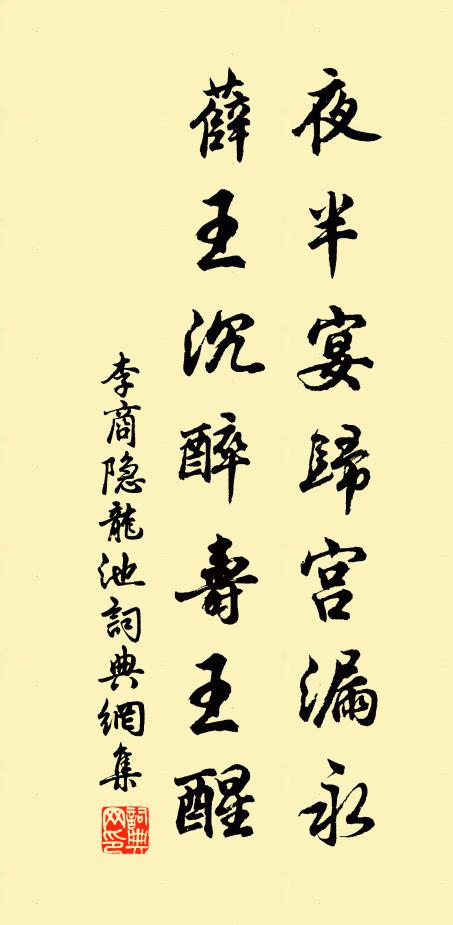 夜半宴歸宮漏永
薛王沉醉壽王醒
李商隐龍池詞典網集
詞典网印